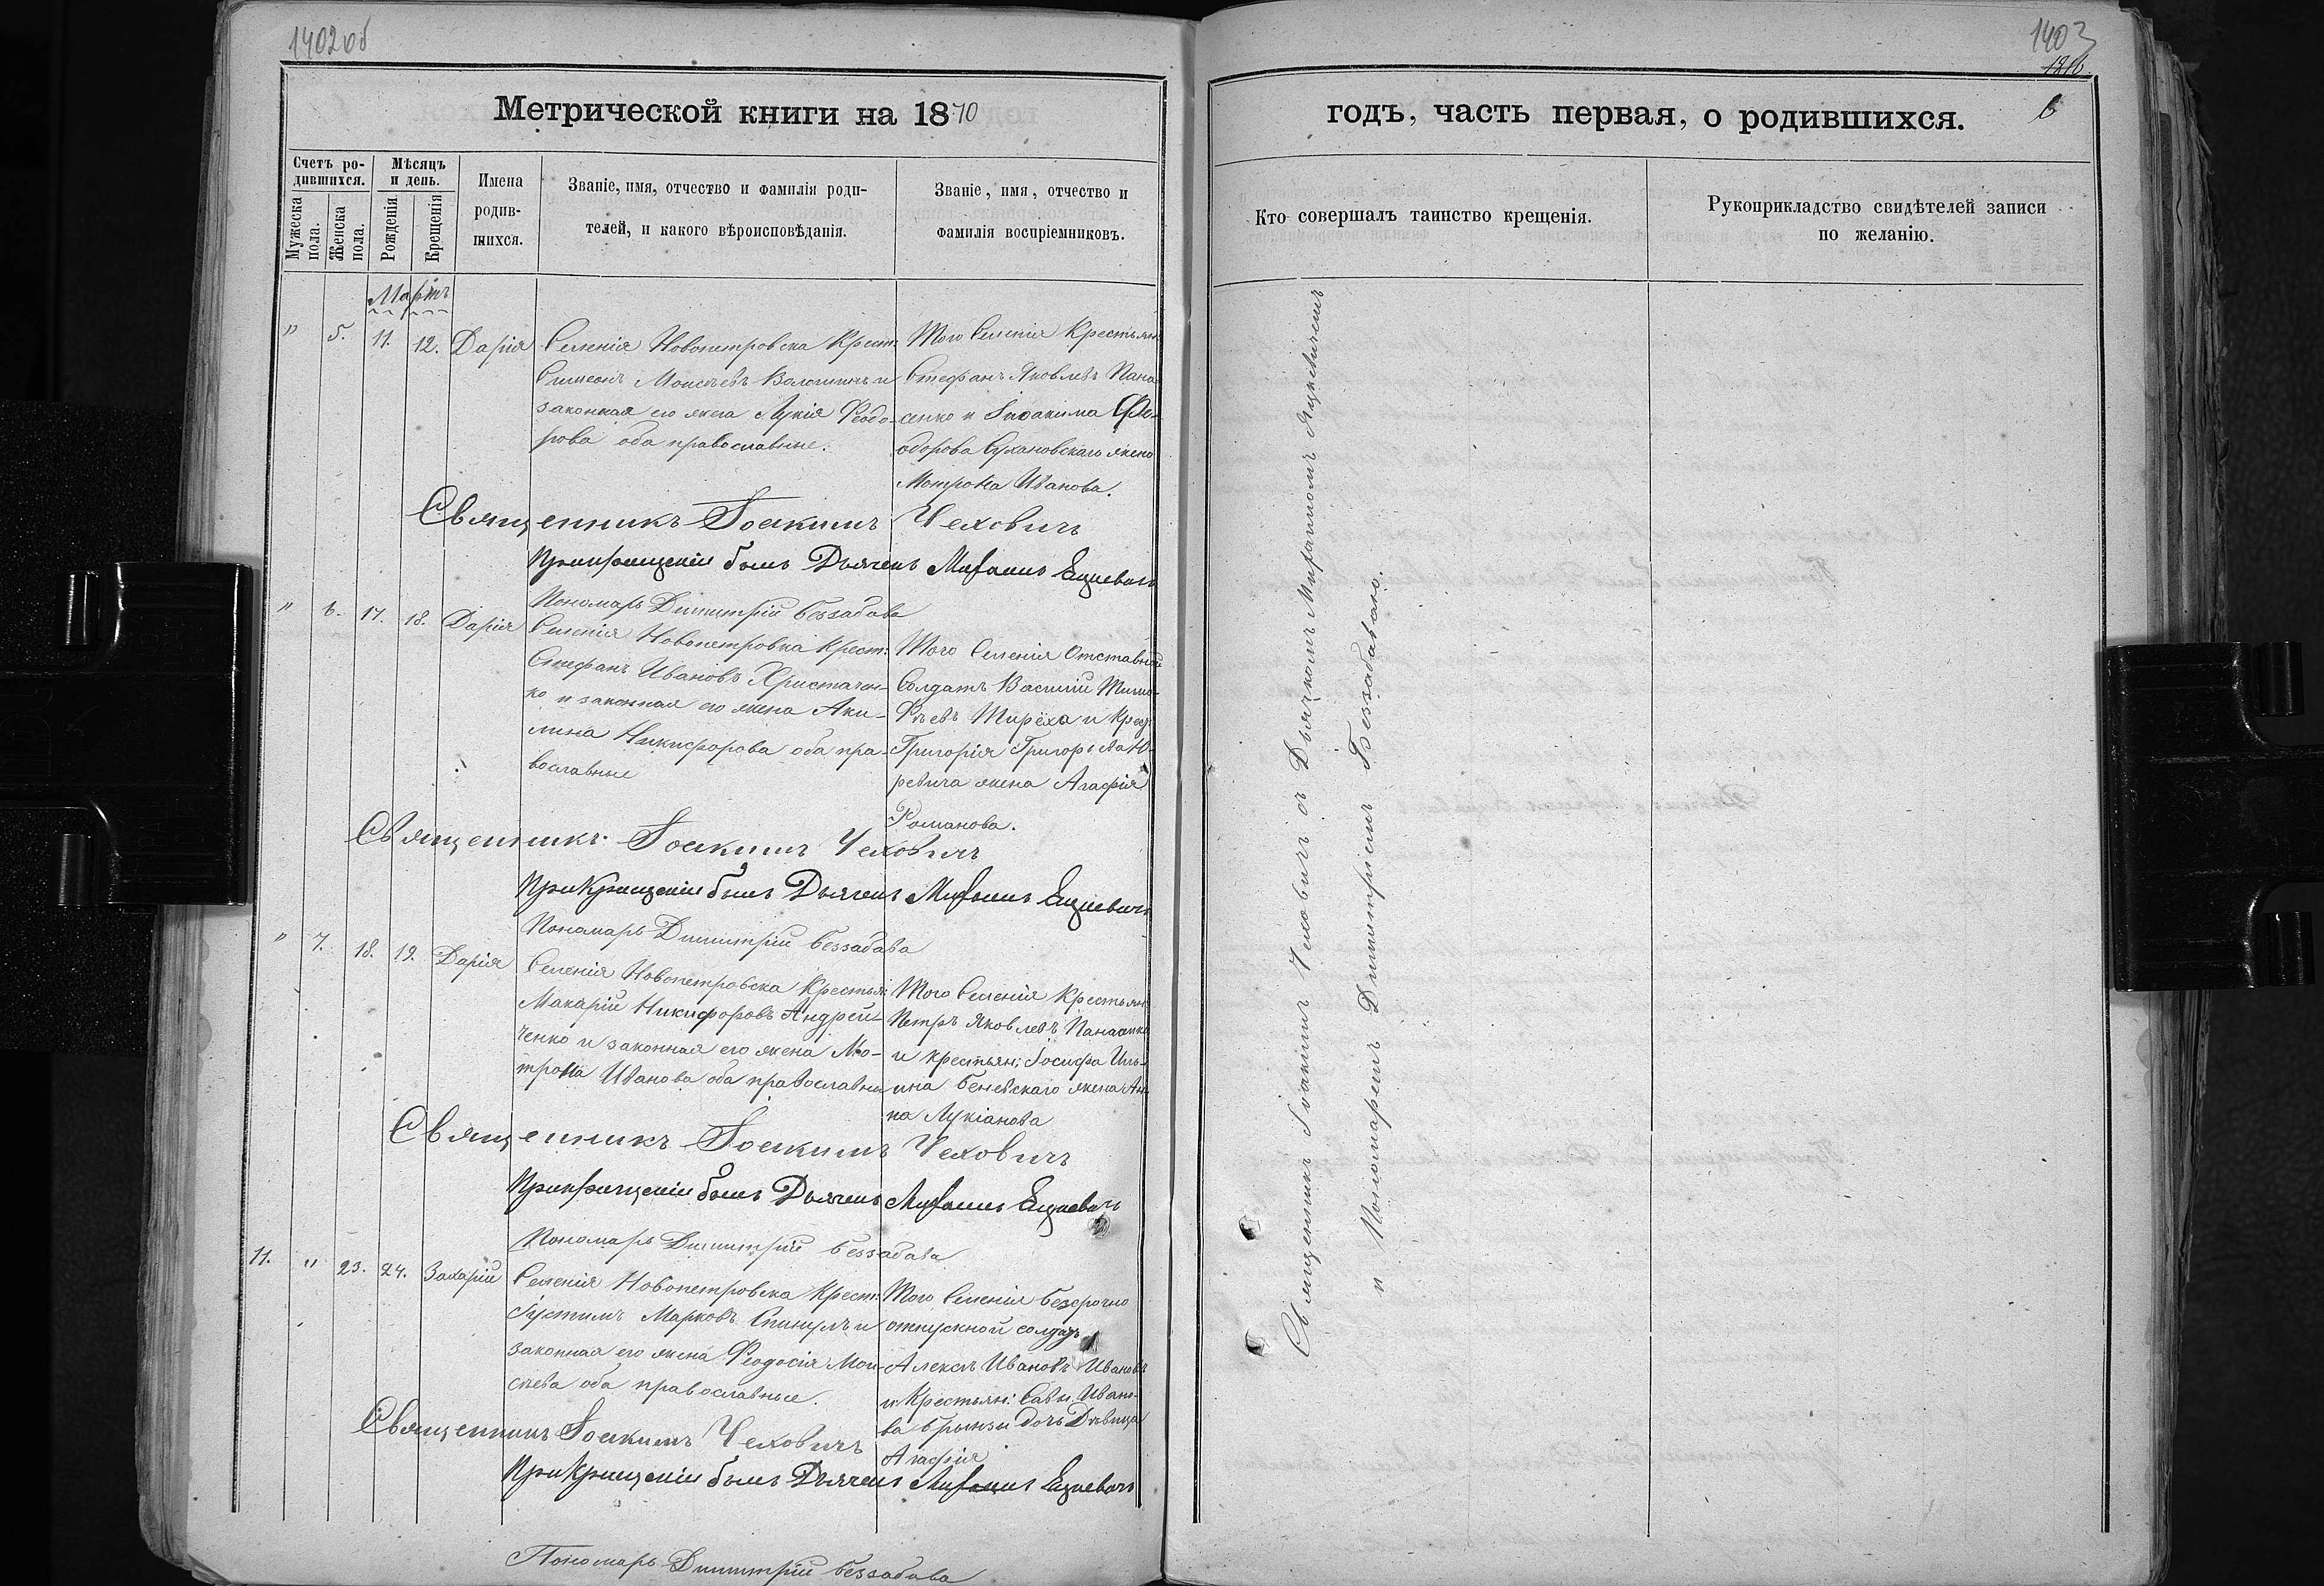 1402 об
Метрической книги на 1870
Счетъ ро-
дившихся.
Мужеска
пола.
Женска
пола.
Мѣсяцъ
и день.
Рожденія
Крещенія
Имена
родив-
шихся.
Званіе, имя, отчество и фамилія роди-
телей, и какого вѣроисповѣданія.
Званіе, имя, отчество и
фамилія воспріемниковъ.
Мартъ
" 5. 11. 12. Дарія
Селенія Новопетровска Крест:
Симеонъ Моисеевъ Волошинъ и
законная его жена Лукія Феодо-
рова оба православные.
Того Селенія Крестьян
Стефанъ Яковлевъ Пана-
сенко и Іоакима Фе-
одорова Сухановскаго жена
Мотрона Иванова.
Священникъ Іоакимъ Чеховичъ
При крещеніи былъ Дьячекъ Митрофанъ
Пономарь Димитрій Беззабава
" 6. 17. 18. Дарія
Селенія Новопетровка Крест:
Стефанъ Ивановъ Христачен-
ко и законная его жена Аки-
лина Никифорова оба пра-
вославные
Того Селенія Отставной
Солдатъ Василій Тимо-
фѣевъ Тирёха и Крест:
Григорія Григорьева Ю-
ревича жена Агафія
Романова.
Священникъ Іоакимъ Чеховичъ
При Крещеніи былъ Дьячекъ
Пономарь Димитрій Беззабава
" 7. 18. 19. Дарія
Селенія Новопетровска Крестьян:
Макарій Никифоровъ Андрей-
ченко и законная его жена Мо-
трона Иванова оба православны
Того Селенія Крестьян:
Петръ Яковлевъ Панасенко
и крестьян: Іосифа Иль-
ина Беневскаго жена Ан-
на Лукіанова
Священникъ Іоакимъ Чеховичъ
При крещеніи былъ Дьячекъ
Пономарь Димитрій Беззабава
11. " 23. 24. Захарій
Селенія Новопетровска Крест:
Іустинъ Марковъ и
законная его жена Феодосія Мои-
сеева оба православные.
Того Селенія безсрочно
отпускной солдатъ
Алексѣй Ивановъ Ивановъ
и Крестьян: Савы Ивано-
ва Брынзы дочь Дѣвица
Агафія
Священникъ Іоакимъ Чеховичъ
При Крещеніи былъ Дьячекъ
Пономарь Димитрій Беззабава
1403
1216
6
годъ, часть первая, о родившихся.
Кто совершалъ таинство крещенія.
Рукоприкладство свидѣтелей записи
по желанію.
Священникъ Іоакимъ Чеховичъ съ Дьячкомъ Яцкевичемъ
и Пономаремъ Димитріемъ Беззабавою.